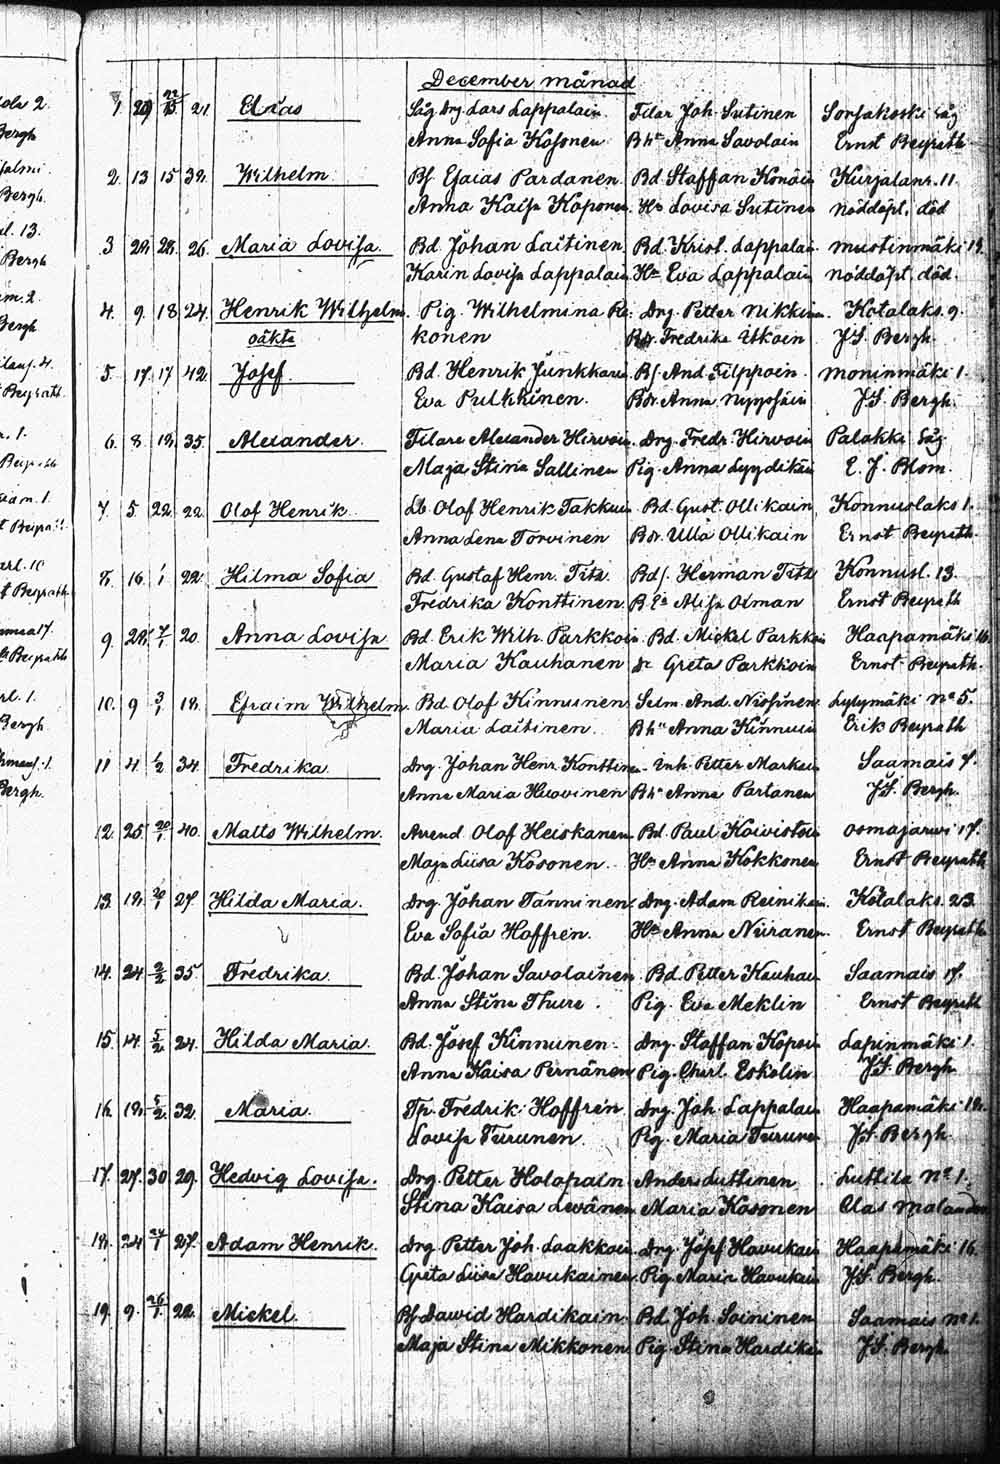 December månad
1. 29 22/12 21. Elias Såg Drg Lars Lappalain. Filar Joh. Sutinen Sorsakoski Såg
Anna Sofia Kosonen Bhn Anna Savolain Ernst Beyrath
2. 13 15 32. Wilhelm Bf Esaias Pardanen Bd Staffan Konäin Kurjalanr. 11.
Anna Kaisa Koponen. Hu Lovisa Sutinen nöddöpt. död
3 28. 26. Maria Lovisa. Bd. Johan Laitinen Bd. Krist. Lappalai. Mustinmäki
Karin Lovisa Lappalain Hn Eva Lappalain nöddöpt. död.
4. 9. 18 24. Henrik Wilhelm. Pig. Wilhelmina Re: Drg. Petter Nikkinen. Kotalaks. 9.
oäkta konen Fredrika Itkoen J.F. Bergh.
5. 17 17 42. Josef. Bd. Henrik Junkkarin Bf. And. Filppoen. Moninmäki 1.
Eva Pulkkinen. Bdr Anna J.F. Bergh.
6. 8. 12. 35. Alexander. Filare Alexander Hirvoin. Drg. Fredr. Hirvoin Palakki Såg
Maja Stina Sallinen Pig. Anna Lyydikäin E. J. Blom.
7. 5. 22. 22. Olof Henrik Olof Henrik Takkuin Bd. Gust. Ollikain Konnuslaks 1.
Anna Lena Torvinen Bdr. Ulla Ollikain Ernst Beyrath.
8. 16. 1/1 22. Hilma Sofia Bd. Gustaf Henr. Titz. Bds. Herman Titz Konnusl. 13.
Fredrika Konttinen. Alisa Oman Ernst Beyrath
9. 28. 7/1 20. Anna Lovisa Bd. Erik Wilh. Parkkoin. Bd. Mickel Parkkoin Haapamäki
Maria Kauhanen Greta Parkkoin Ernst Beyrath.
10. 9 3/1 18. Efraim Wilhelm. Bd. Olof Kinnunen Selm. And. Nissinen. Lylymäki No 5.
Maria Laitinen. Bhn Anna Kinnuin Erik Beyrath
11 4. 1/2 34. Fredrika. Drg. Johan Henr. Konttinen. Inh. Petter Markain Saamais 7.
Anna Maria Huovinen Bhn Anna Partanen J.F. Bergh.
12. 25. 20/1 40. Matts Wilhelm. Arend. Olof Heiskanen Bd. Paul Koivistoin Osmajärvi 17.
Maja Liisa Kosonen. Hn Anna Kokkonen Ernst Beyrath
13. 18. 20/1 27. Hilda Maria. Drg. Johan Tanninen. Drg. Adam Reinikain. Kotalaks. 23.
Eva Sofia Hoffrén. Hn Anna Niiranen. Ernst Beyrath
14. 24. 2/2 35. Fredrika. Bd. Johan Savolainen Bd. Petter Kauhain Saamais 17.
Anna Stina Thure. Pig. Eva Meklin Ernst Beyrath
15. 14. 5/2 24. Hilda Maria. Bd. Josef Kinnunen. Drg. Staffan Kopoin Lapinmäki 1.
Anna Kaisa Pernänen Pig. Charl. Eskelin J.F. Bergh.
16. 18. 5/2 32. Maria. Tp. Fredrik Hoffrén. Drg. Joh. Lappalain Haapamäki 18.
Lovisa Teirunen. Pig. Maria Teirunen J.F. Bergh.
17. 27. 30 29. Hedvig Lovisa. Drg. Petter Holopain Anders Luttinen Luttila No 1.
Stina Kaisa Levänen Maria Kosonen Clas Malander
18. 24. 24/1 27. Adam Henrik. Drg. Petter Joh. Laakkoin. Drg. Josef Havukain Haapamäki 16.
Greta Liisa Havukainen Pig. Maria Havukain J.F. Bergh.
19. 9. 26/1 22. Mickel. Bf David Hardikain. Bd. Joh. Soininen Saamais No 1.
Maja Stina Mikkonen Pig. Stina Hardikain J.F. Bergh.